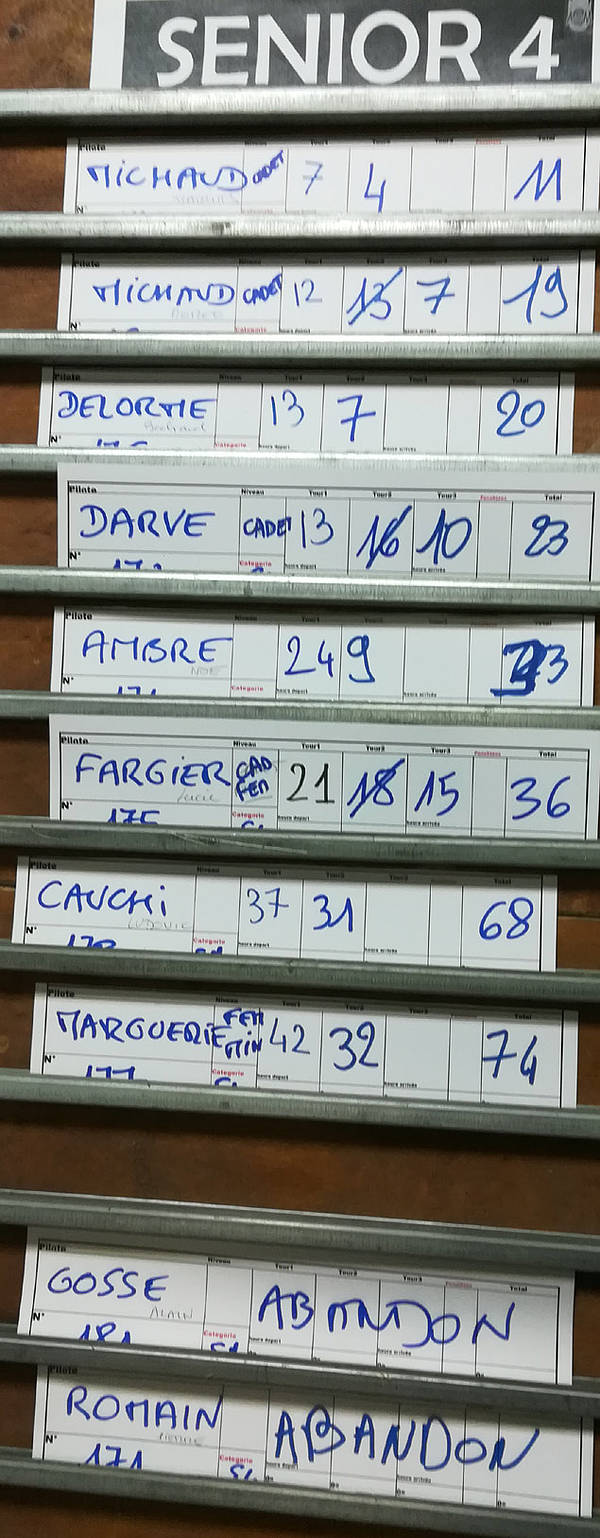 SENIOR 4
Pilote Niveau Tour1 Tour2 Tour3 Total
MICHAUD CADET 7 4 11
N°
Pilote Total
MICHAUD CADET 12 13 7 19
N° Catégorie heure départ heure arrivée
Pilote Niveau Tour1 Tour2 Tour3 Total
DELORME 13 7 20
Bertrand
N° 176 Catégorie heure départ heure arrivée
Pilote Niveau Tour1 Tour2 Tour3 Pénalités Total
DARVE CADET 13 16 10 23
N° Catégorie heure départ heure arrivée
Pilote Total
AMBRE 24 9 33
NOE
N° 174 Catégorie heure départ heure arrivée
Pilote Niveau Tour1 Tour2 Tour3 Pénalités Total
FARGIER CAD FEM 21 18 15 36
Lucie
N° 175 Catégorie heure départ heure arrivée
Pilote Niveau Tour1 Tour2 Tour3 Total
CAUCHI 37 31 68
LUDOVIC
N° Catégorie heure départ heure arrivée
Pilote Niveau Tour1 Tour2 Tour3 Total
MARGUERIE FEM MIN 42 32 74
N° 177 Catégorie heure départ heure arrivée
Pilote Niveau Tour1 Tour2 Tour3 Pénalités Total
GOSSE ABANDON
ALAIN
N° 181 Catégorie heure départ heure arrivée
Pilote
ROMAIN ABANDON
PIERRE
N° 171 Catégorie heure départ heure arrivée